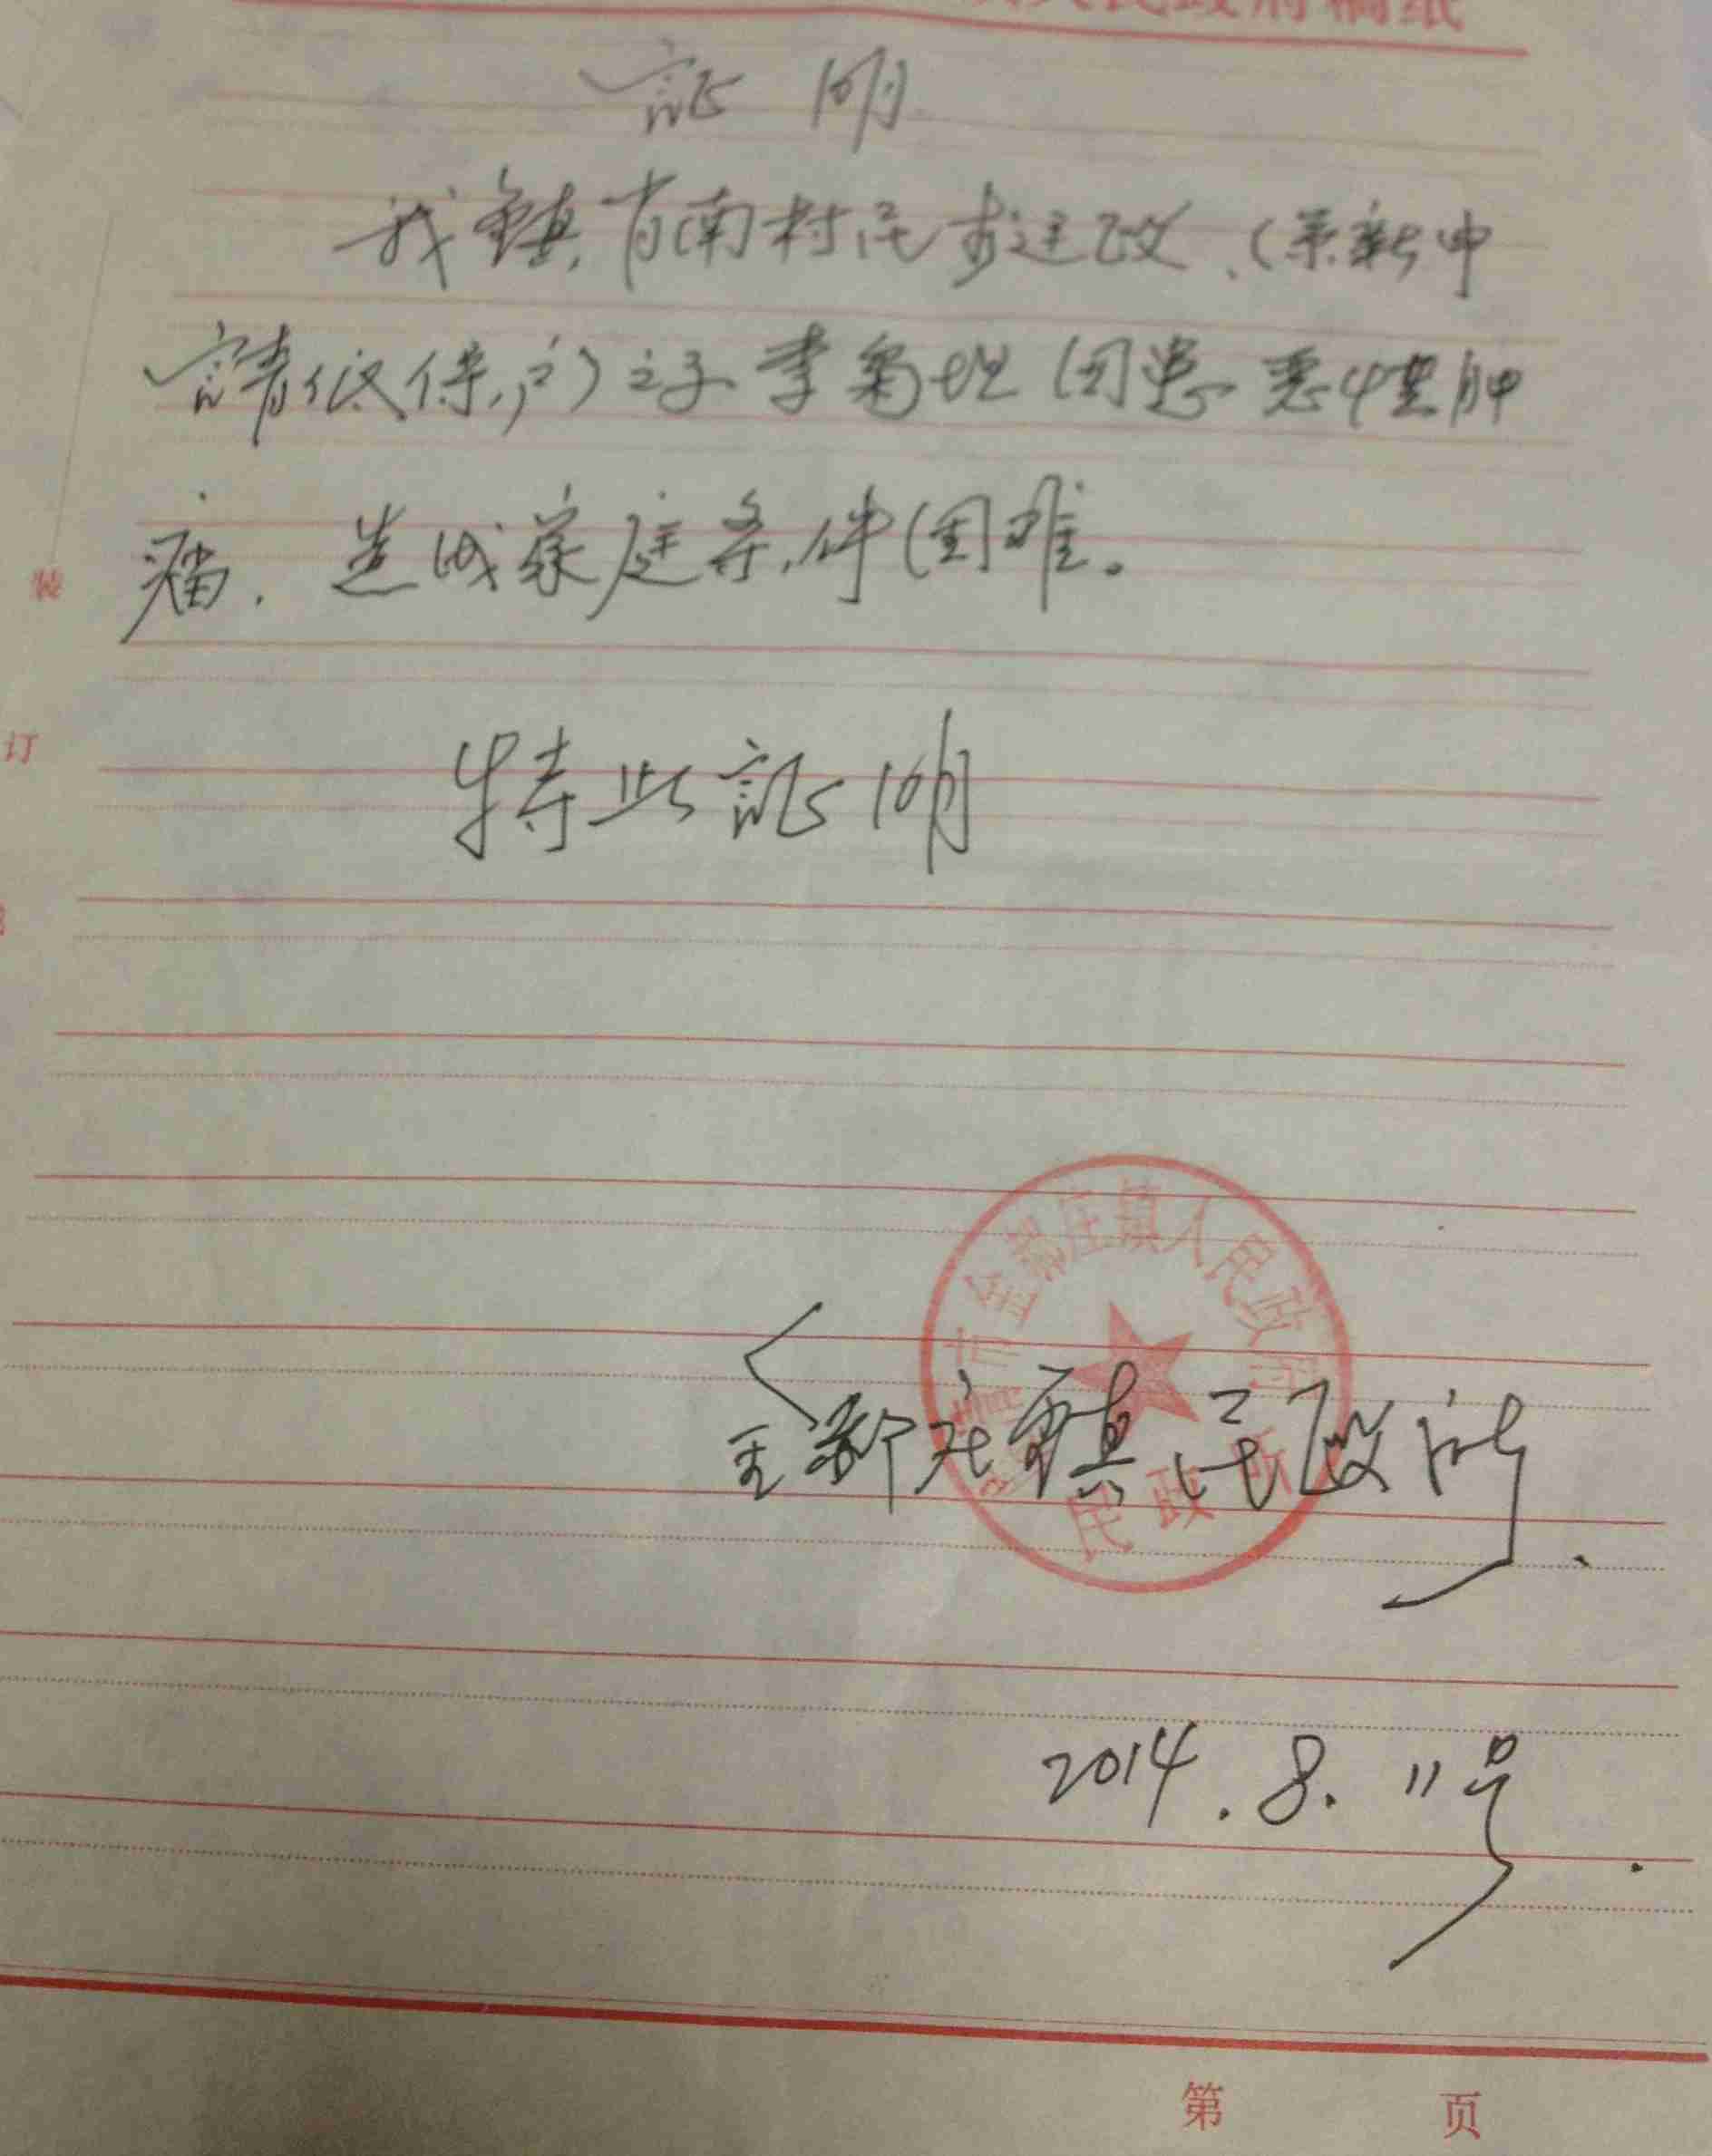 人民政府稿纸
証明
我镇肖南村民李建政、(系新申
請低保户)之子李菊 因患恶性肿
瘤.造成家庭条件困难。
特此証明
全 庄镇人民政府
民政所
庄镇民政所
2014.8.11号
装
订
第 页